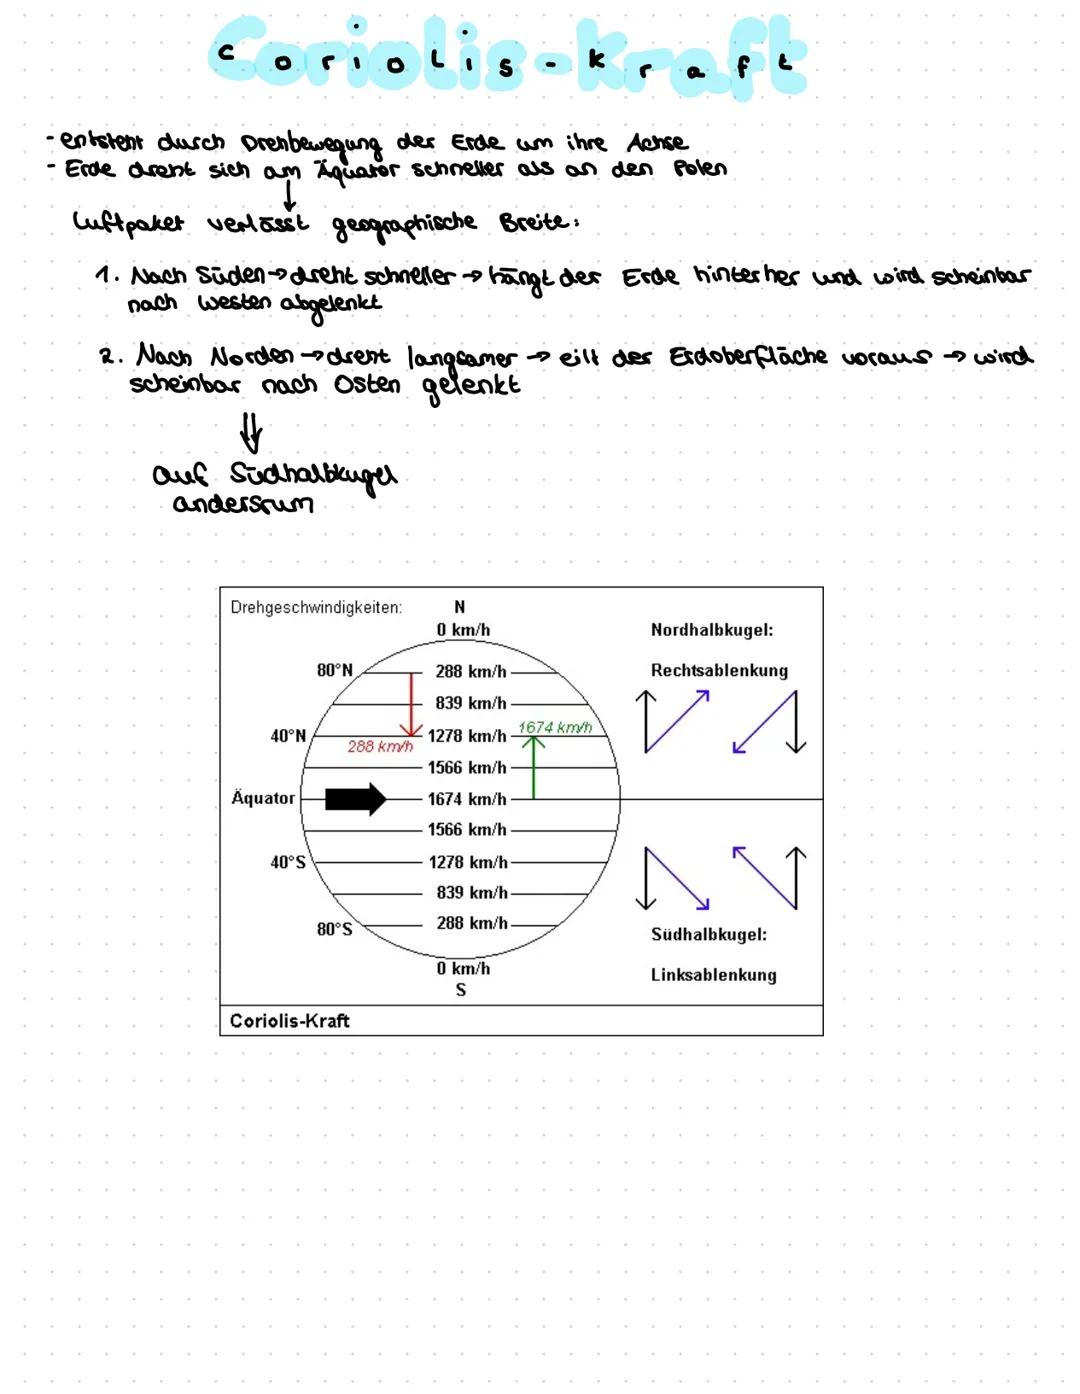 Coriolis-Kraft
- entsteht durch Drehbewegung der Erde um ihre Achse
- Erde dreht sich am Äquator schneller als an den Polen
Luftpaket verlässt geographische Breite:
1. Nach Süden → dreht schneller → hängt der Erde hinterher und wird scheinbar
nach Westen abgelenkt
2. Nach Norden → dreht langsamer → eilt der Erdoberfläche voraus → wird
scheinbar nach Osten gelenkt
auf Südhalbkugel
andersrum
Drehgeschwindigkeiten:
N
0 km/h
Nordhalbkugel:
80°N
288 km/h
Rechtsablenkung
839 km/h
40°N
288 km/h
1278 km/h
1674 km/h
1566 km/h
Äquator
1674 km/h
1566 km/h
40°S
1278 km/h
839 km/h
80°S
288 km/h
Südhalbkugel:
0 km/h
S
Linksablenkung
Coriolis-Kraft